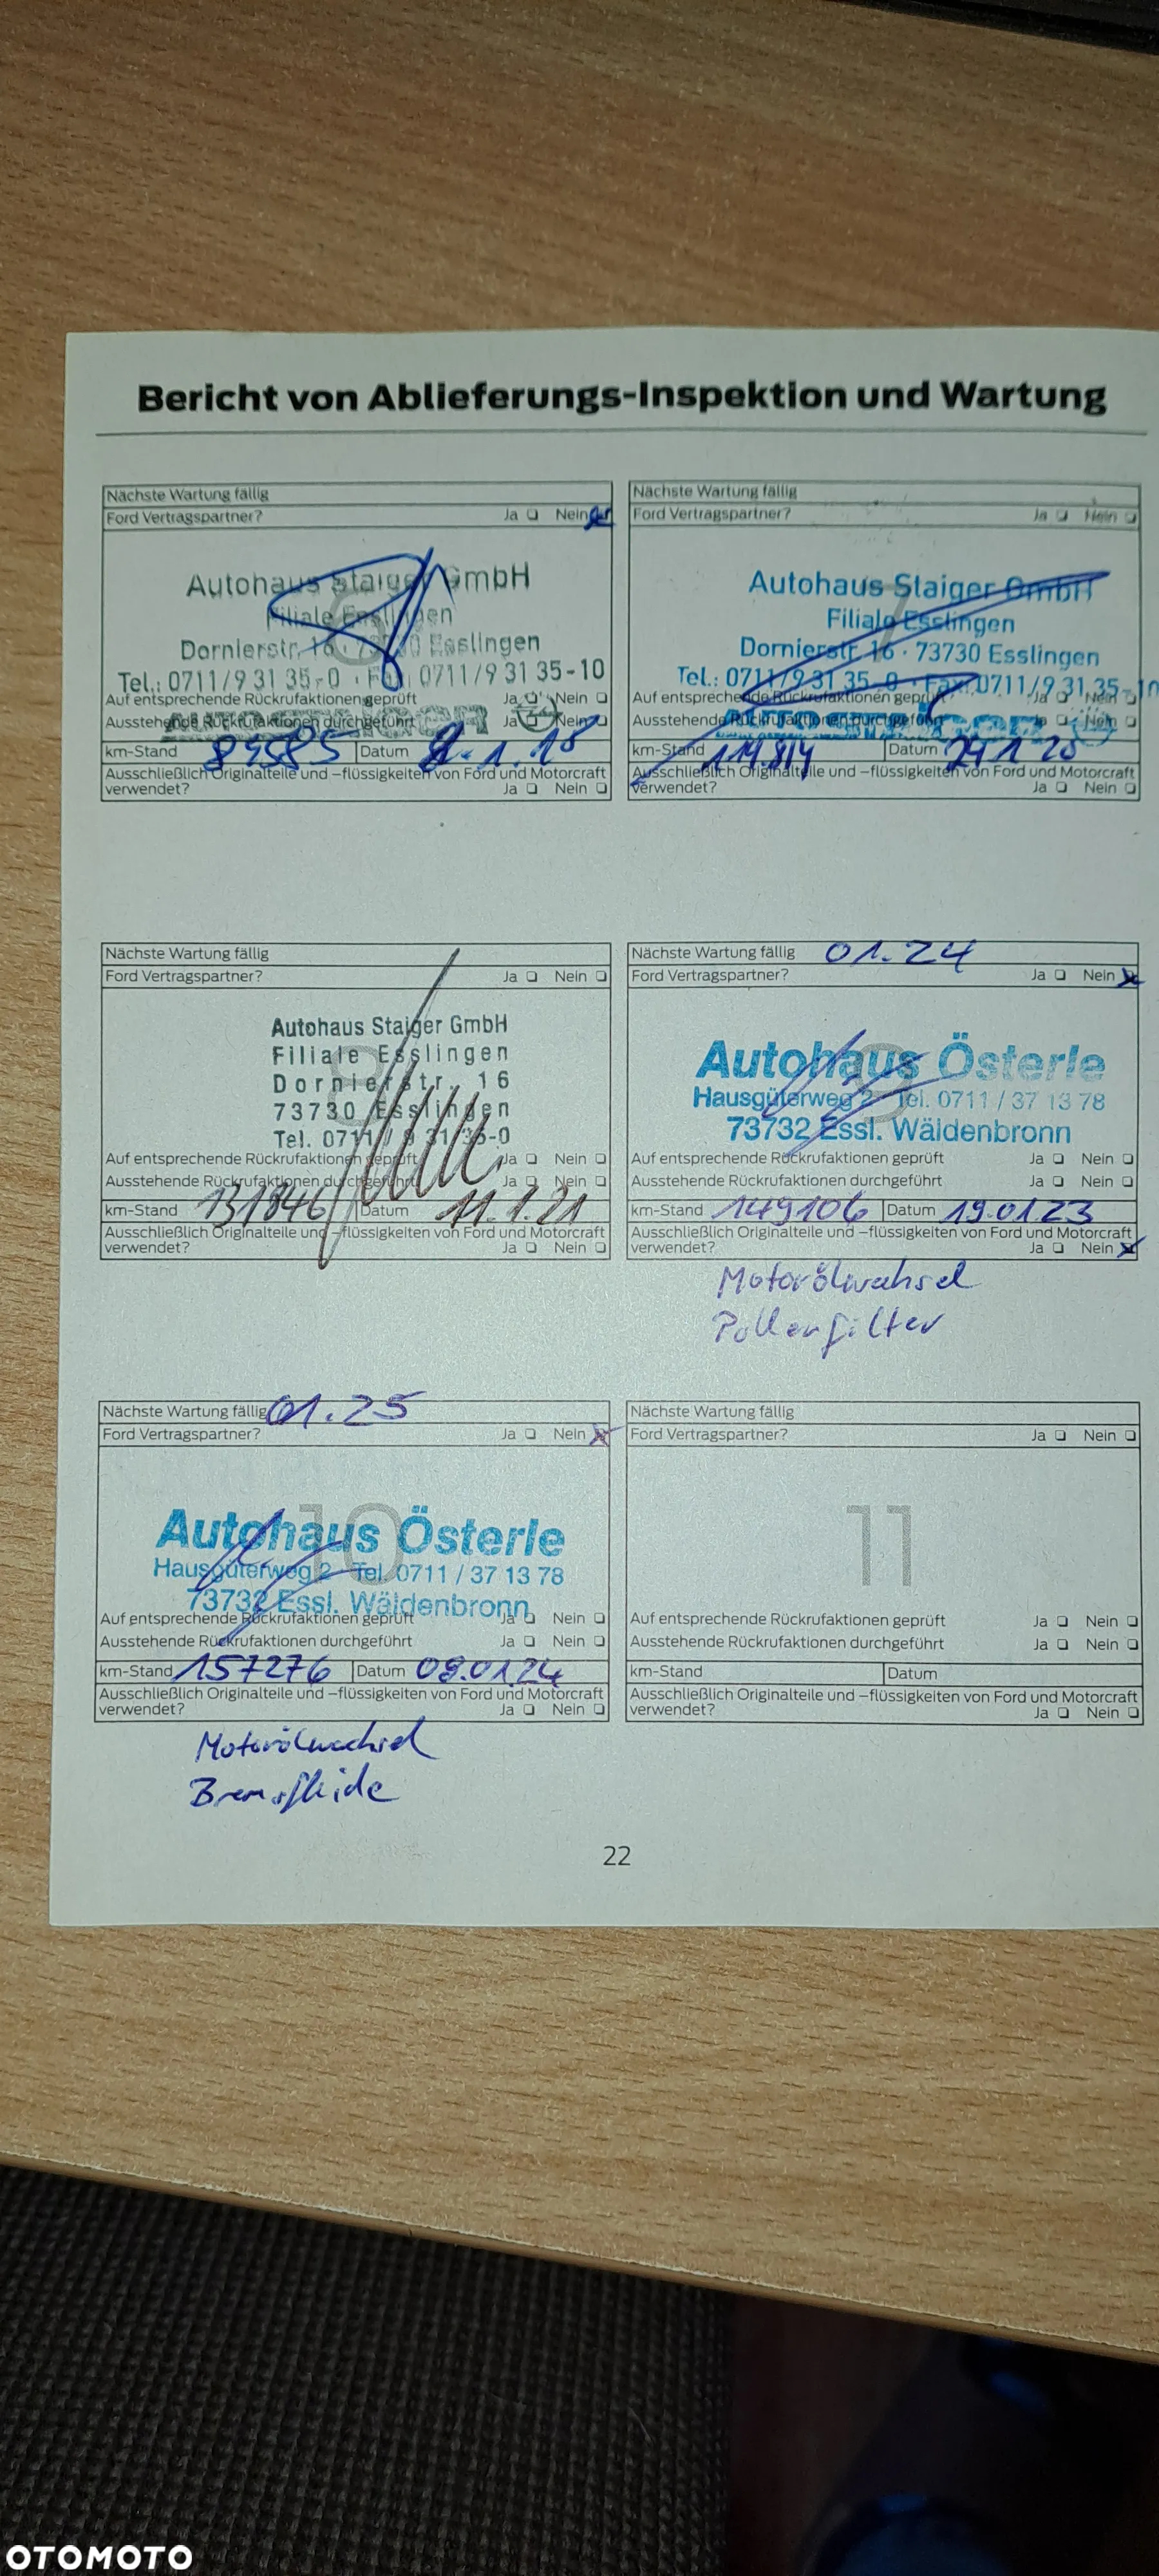 Bericht von Ablieferungs-Inspektion und Wartung
Nächste Wartung fällig
Ford Vertragspartner? Ja Nein
Autohaus Staiger GmbH
Filiale Esslingen
Dornierstr. 16 · 73730 Esslingen
Tel.: 0711/9 31 35-0 · Fax: 0711/9 31 35-10
Auf entsprechende Rückrufaktionen geprüft Ja Nein
Ausstehende Rückrufaktionen durchgeführt Ja Nein
km-Stand Datum
Ausschließlich Originalteile und –flüssigkeiten von Ford und Motorcraft
verwendet? Ja Nein
Nächste Wartung fällig
Ford Vertragspartner? Ja Nein
7
Autohaus Staiger GmbH
Filiale Esslingen
Dornierstr. 16 · 73730 Esslingen
Tel.: 0711/9 31 35-0 · Fax: 0711/9 31 35-10
Auf entsprechende Rückrufaktionen geprüft Ja Nein
Ausstehende Rückrufaktionen durchgeführt Ja Nein
km-Stand 114.814 Datum
Ausschließlich Originalteile und –flüssigkeiten von Ford und Motorcraft
verwendet? Ja Nein
Nächste Wartung fällig
Ford Vertragspartner? Ja Nein
Autohaus Staiger GmbH
Filiale Esslingen
Dornierstr. 16
73730 Esslingen
Tel. 0711 / 9 31 35-0
Auf entsprechende Rückrufaktionen geprüft Ja Nein
Ausstehende Rückrufaktionen durchgeführt Ja Nein
km-Stand 131846 Datum 11.1.21
Ausschließlich Originalteile und –flüssigkeiten von Ford und Motorcraft
verwendet? Ja Nein
Nächste Wartung fällig 01.24
Ford Vertragspartner? Ja Nein
9
Autohaus Österle
Hausgüterweg 2 Tel. 0711 / 37 13 78
73732 Essl. Wäldenbronn
Auf entsprechende Rückrufaktionen geprüft Ja Nein
Ausstehende Rückrufaktionen durchgeführt Ja Nein
km-Stand 149106 Datum 19.01.23
Ausschließlich Originalteile und –flüssigkeiten von Ford und Motorcraft
verwendet? Ja Nein
Motorölwechsel
Pollenfilter
Nächste Wartung fällig 01.25
Ford Vertragspartner? Ja Nein
10
Autohaus Österle
Hausgüterweg 2 Tel. 0711 / 37 13 78
73732 Essl. Wäldenbronn
Auf entsprechende Rückrufaktionen geprüft Ja Nein
Ausstehende Rückrufaktionen durchgeführt Ja Nein
km-Stand 157276 Datum 09.01.24
Ausschließlich Originalteile und –flüssigkeiten von Ford und Motorcraft
verwendet? Ja Nein
Motorölwechsel
Nächste Wartung fällig
Ford Vertragspartner? Ja Nein
11
Auf entsprechende Rückrufaktionen geprüft Ja Nein
Ausstehende Rückrufaktionen durchgeführt Ja Nein
km-Stand Datum
Ausschließlich Originalteile und –flüssigkeiten von Ford und Motorcraft
verwendet? Ja Nein
22
OTOMOTO